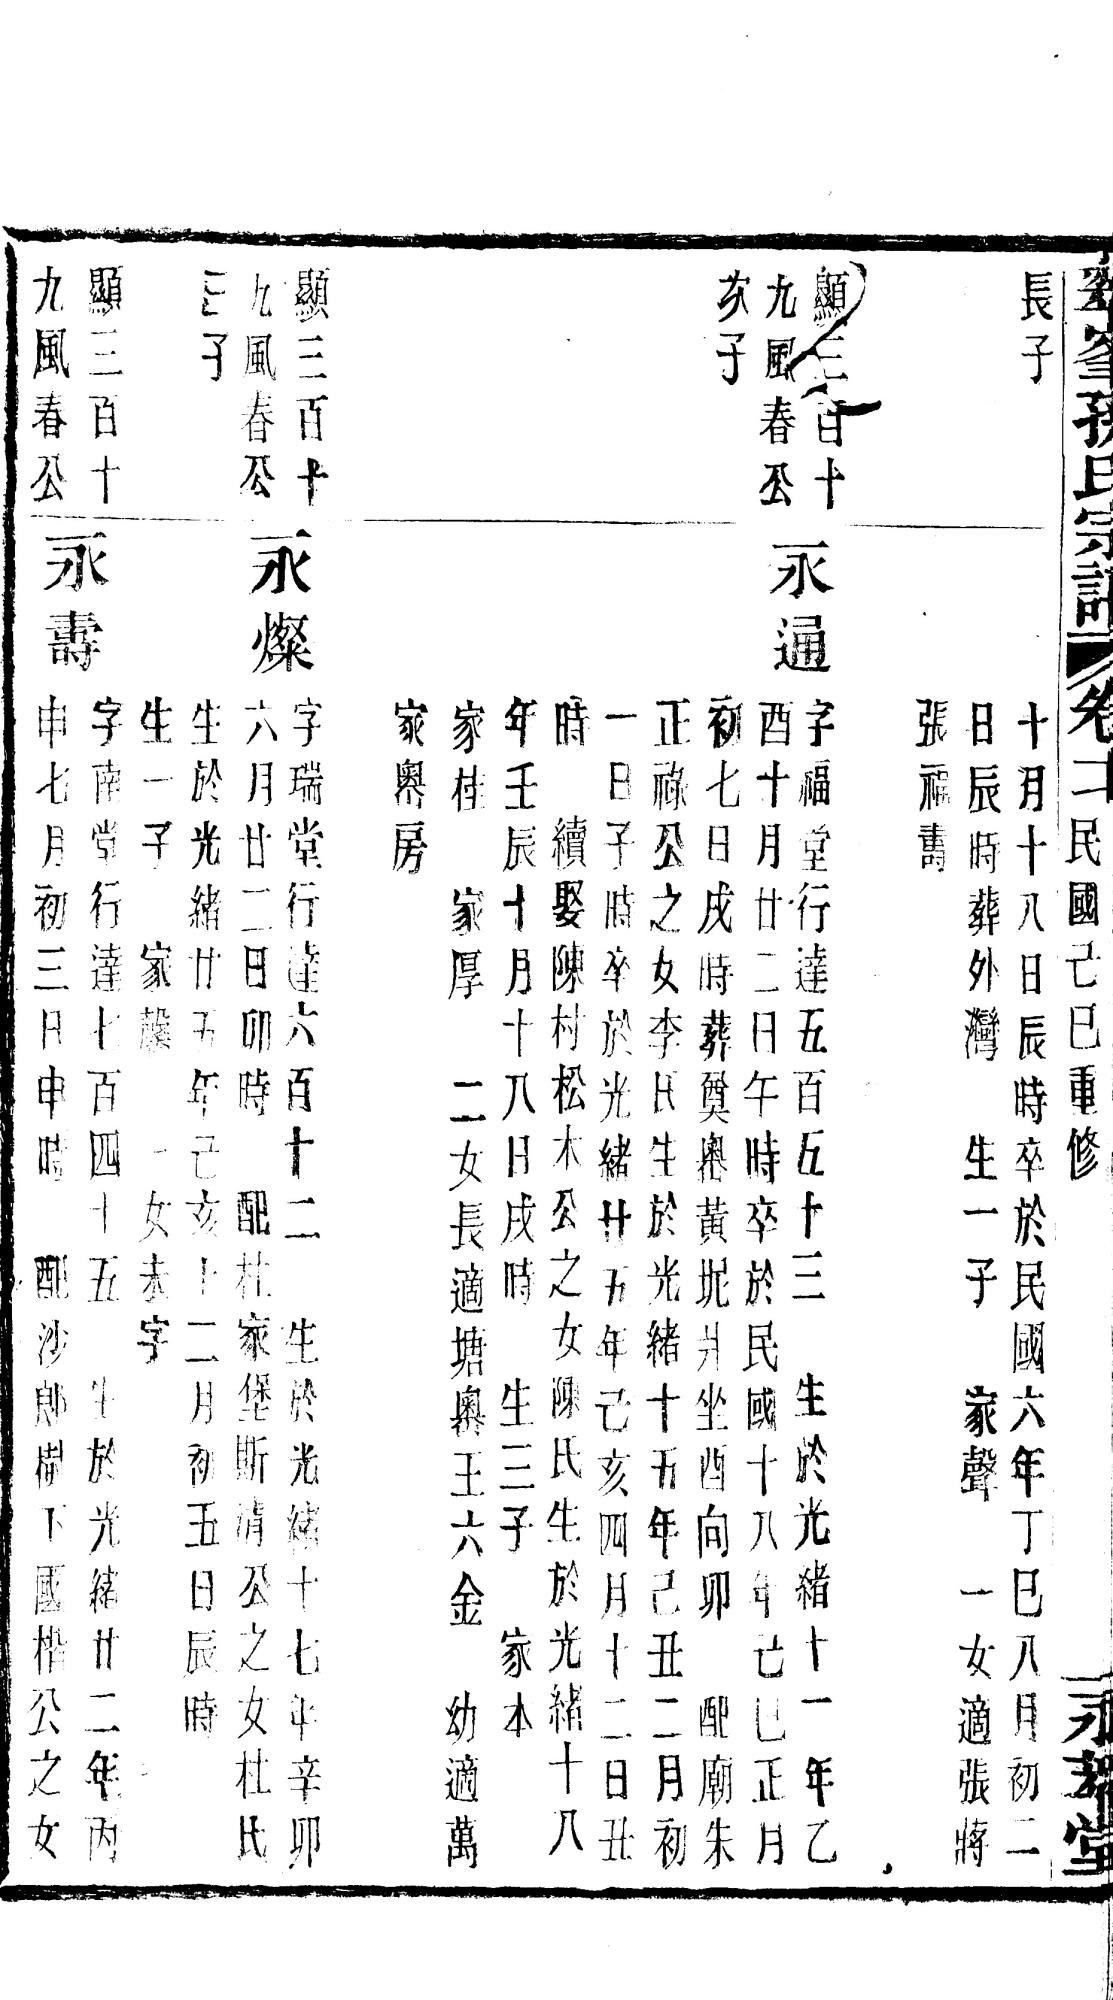 峯孫氏宗譜 卷十 民國己巳重修 永思堂
長子
十月十八日辰時卒於民國六年丁巳八月初二
日辰時葬外灣 生一子 家聲 一女適張蔣
張福壽
顯三百十
九風春公
次子
永通
字福堂行達五百五十三 生於光緒十一年乙
酉十月廿二日午時卒於民國十八年己巳正月
初七日戌時葬奠奧黃坭爿坐酉向卯 配廟朱
正祿公之女李氏生於光緒十五年己丑二月初
一日子時卒於光緒廿五年己亥四月十二日丑
時 續娶陳村松木公之女陳氏生於光緒十八
年壬辰十月十八日戌時 生三子 家本
家桂 家厚 二女長適塘奧王六金 幼適萬
家奧房
顯三百十
九風春公
三子
永燦
字瑞堂行達六百十二 生於光緒十七年辛卯
六月廿二日卯時 配杜家堡斯清公之女杜氏
生於光緒廿五年己亥十二月初五日辰時
生一子 家馨 一女未字
顯三百十
九風春公
永壽
字南堂行達七百四十五 生於光緒廿二年丙
申七月初三日申時 配沙郎樹下國楷公之女